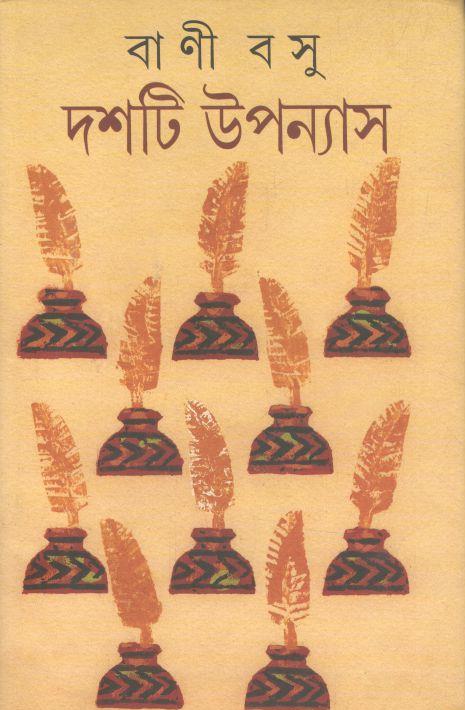 বাণী বসু
দশটি উপন্যাস